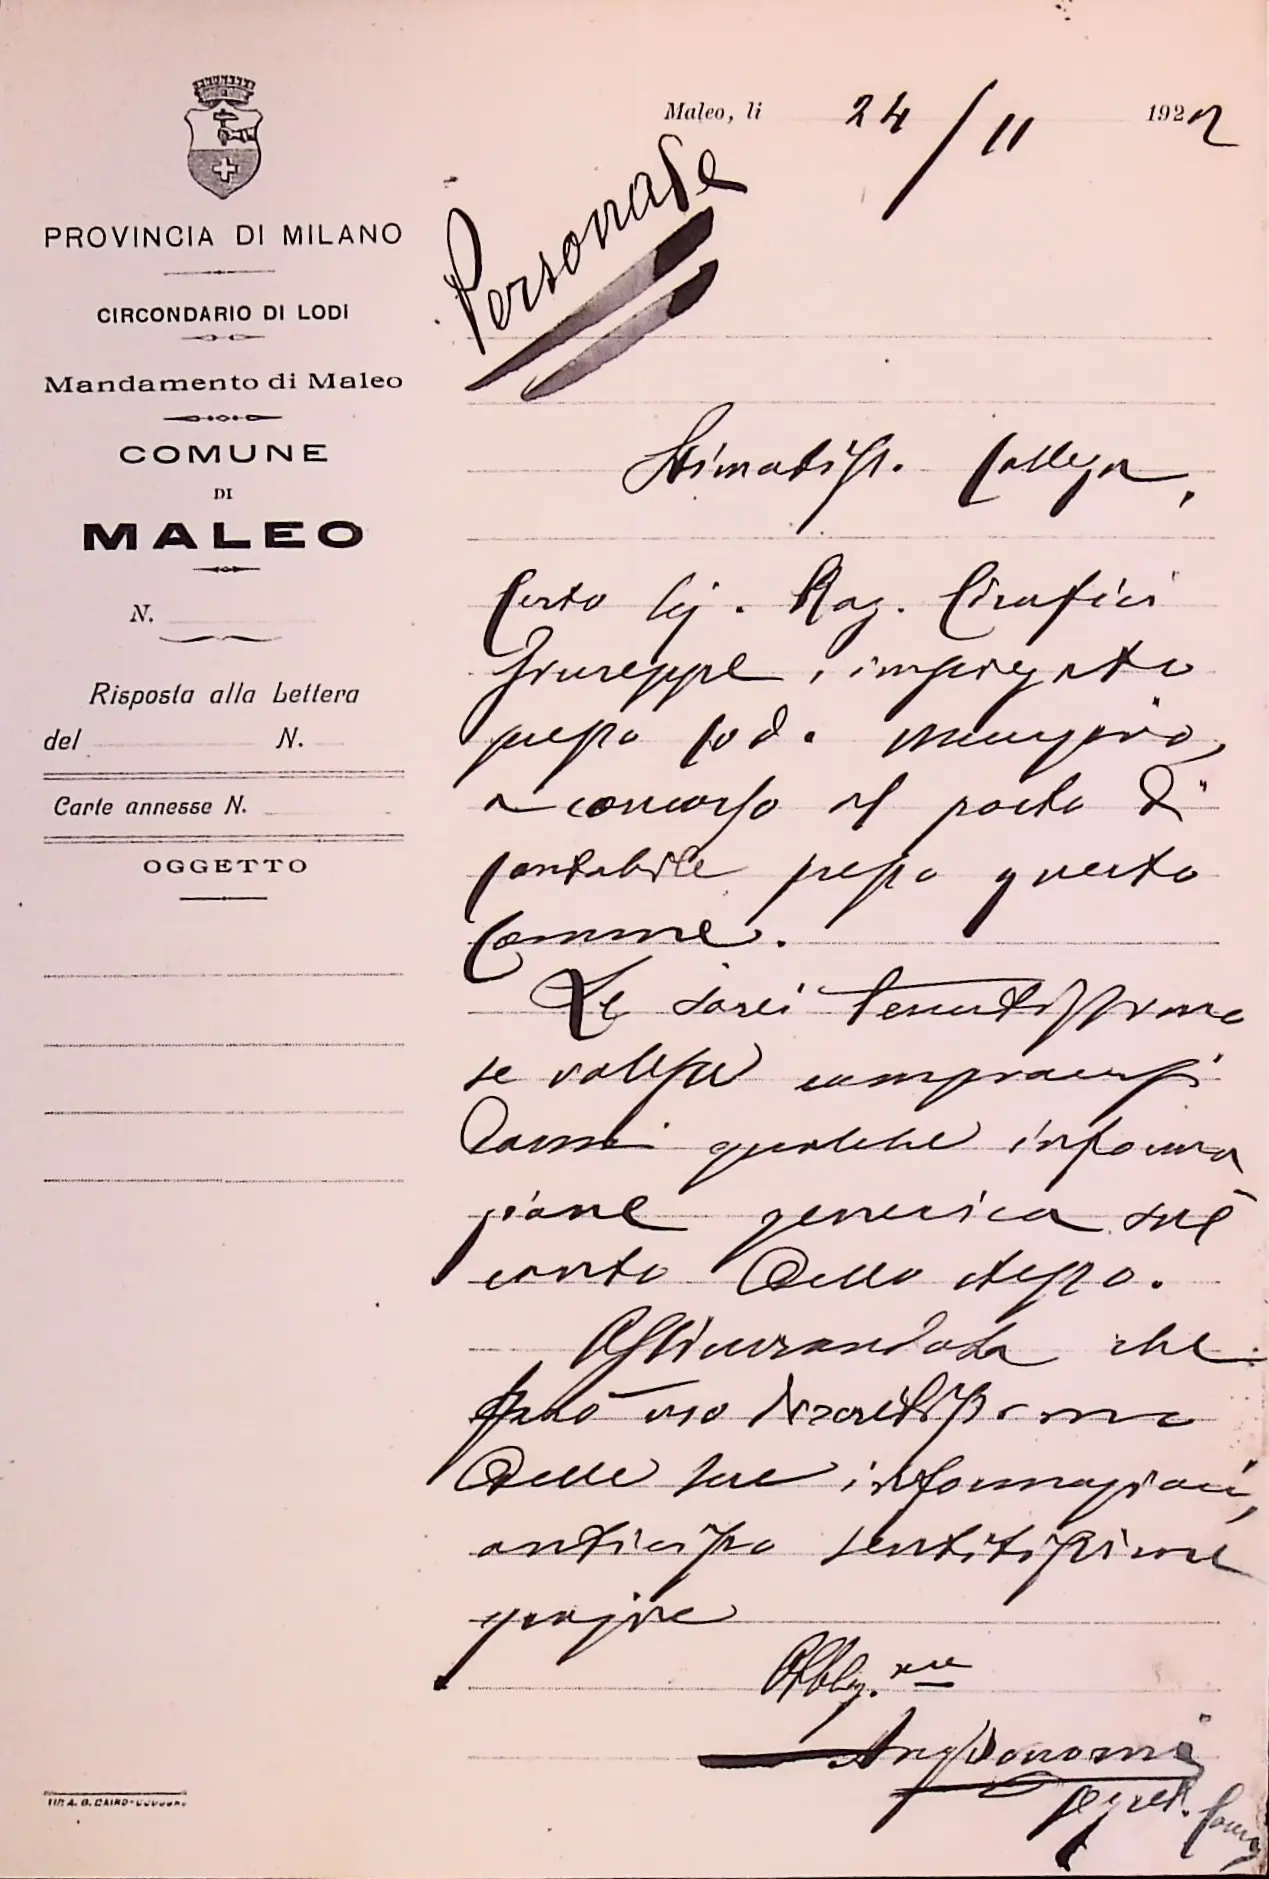 Maleo, li 24/11 1922
Personale
PROVINCIA DI MILANO
CIRCONDARIO DI LODI
Mandamento di Maleo
COMUNE
DI
MALEO
N.
Risposta alla Lettera
del N.
Carte annesse N.
OGGETTO
Stimatiss. Collega,
Certo Sig. Rag. Cinefici
Giuseppe, impiegato
presso cod. municipio,
a concorso al posto di
contabile presso questo
Comune.
Le sarei tenutissimo
se volesse compiacersi
darmi qualche informa
zione generica sul
conto dello stesso.
Assicurandola che
farò uso discretissimo
delle sue informazioni,
anticipo sentitissime
grazie
Obblg.mo
Segret. Com.